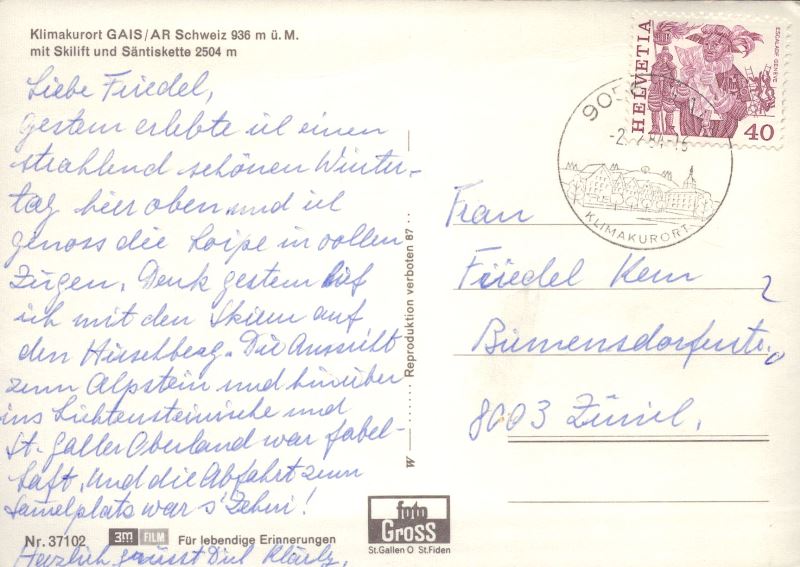 Klimakurort GAIS/AR Schweiz 936 m ü. M.
mit Skilift und Säntiskette 2504 m
Liebe Friedel,
gestern erlebte ich einen
strahlend schönen Winter-
tag hier oben und ich
genoss die Loipe in vollen
Zügen. Denk gestern lief
ich mit den Skiern auf
den Hirschberg. Die Aussicht
zum Alpstein und hinüber
ins Lichtensteinische und
St. Galler Oberland war fabel-
haft, und die Abfahrt zum
war s'Zehni!
Herzlich grüsst Dich
Nr. 37102 3M FILM Für lebendige Erinnerungen
W Reproduktion verboten 87
foto
Gross
St.Gallen O St.Fiden
HELVETIA
ESCALADE GENÈVE
40
905
-2. 84-16
KLIMAKURORT
Frau
Friedel Kern
Birmensdorferstr.
8003 Zürich.